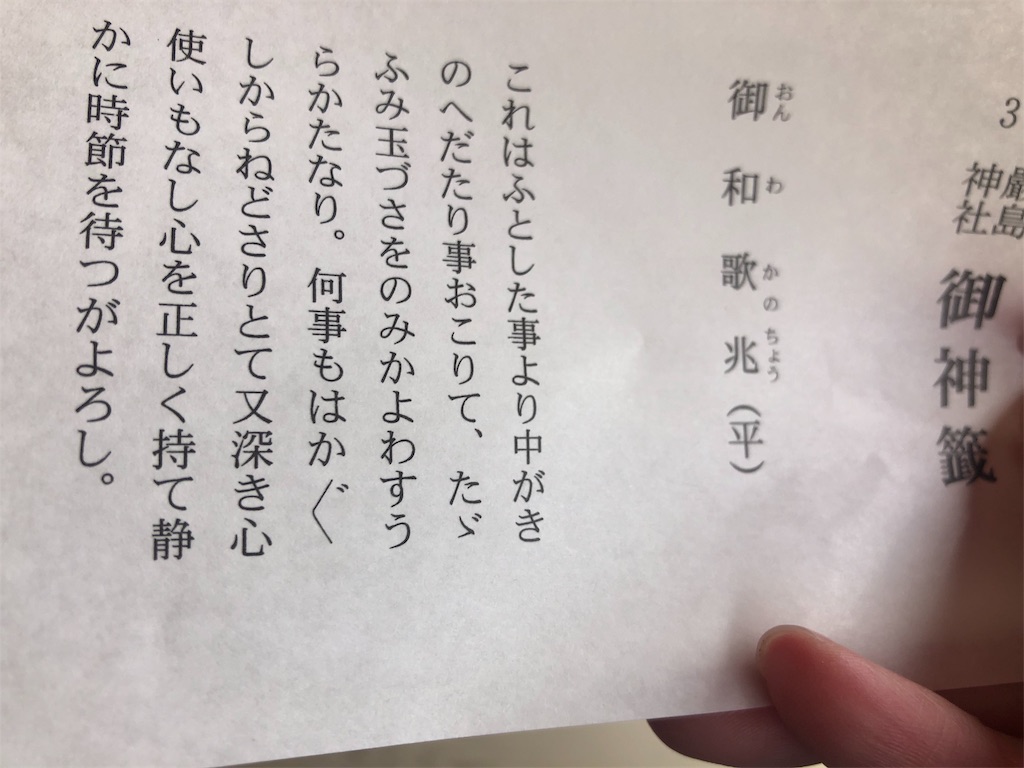 3
厳島
神社
御神籤
御和歌兆(平)
おん わ かの ちょう
これはふとした事より中がき
のへだたり事おこりて、たゞ
ふみ玉づさをのみかよわすう
らかたなり。何事もはか〴〵
しからねどさりとて又深き心
使いもなし心を正しく持て静
かに時節を待つがよろし。